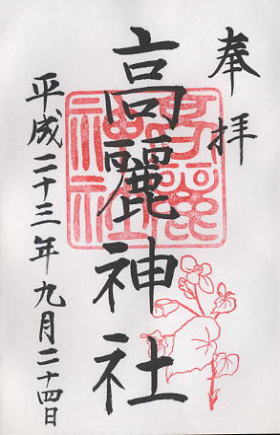 奉拝
高麗神社
高麗神社
平成二十三年九月二十四日